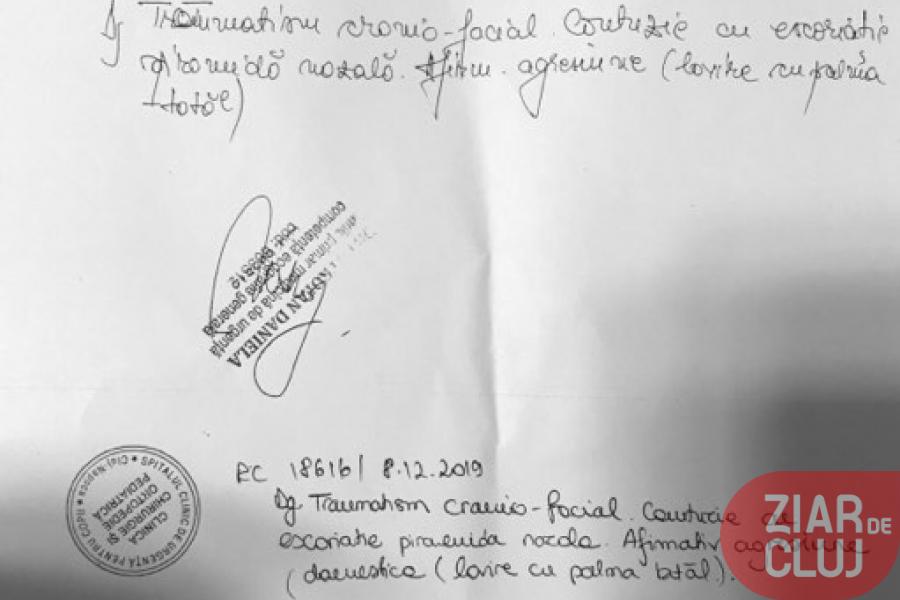 Dg Traumatism cranio-facial. Contuzie cu escoriatie
piramidă nazală. Afirm. agresiune (lovire cu palma
tatăl)
competenta ecografie generala
DANIELA
SPITALUL CLINIC DE URGENȚĂ PENTRU COPII
CLINICA
CHIRURGIE ȘI
ORTOPEDIE
PEDIATRICĂ
RC 18616/ 8.12.2019
Dg Traumatism cranio-facial. Contuzie cu
escoriatie piramida nazala. Afirmativ agresiune
(domestica (lovire cu palma tatăl).
ZIAR DE
CLUJ